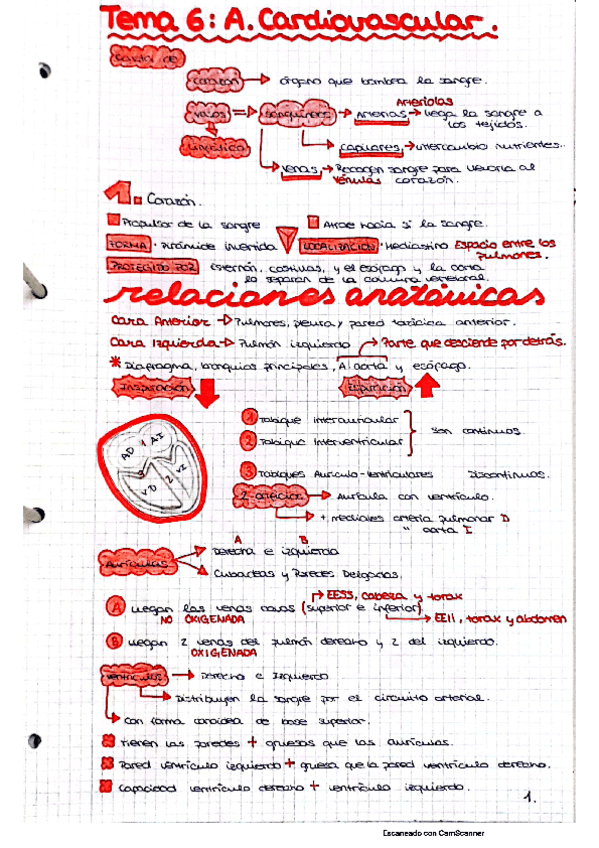 Tema 6: A. Cardiovascular.
Constar de
corazón → órgano que bombea la sangre.
Arteriolas
vasos ⇒ sanguíneos → Arterias → llega la sangre a los tejidos.
capilares, → intercambio nutrientes.
Linfático
venas, → Recogen sangre para llevarla al
vénulas corazón.
1. Corazón.
Propulsor de la sangre Atrae hacia si la sangre.
FORMA · Pirámide invertida LOCALIZACIÓN · Mediastino Espacio entre los pulmones.
PROTEGIDO POR esternón, costillas, y el esófago y la aorta
lo separan de la columna vertebral.
relaciones anatómicas
Cara Anterior → Pulmones, pleura y pared torácica anterior.
Cara Izquierda → Pulmón izquierdo → Parte que desciende por detrás.
* Diafragma, bronquios principales, A. aorta y esófago.
Inspiración Espiración
1 Tabique Interauricular
2 Tabique Interventricular
son continuos.
3 Tabiques Aurículo-ventriculares Discontinuos.
AD 1 AI
3
VD 2 VI
2 orificios → Aurícula con ventrículo.
+ mediales arteria pulmonar D
" aorta I
A B
Aurículas Derecha e izquierda
Cuboideas y Paredes Delgadas.
EESS, cabeza y torax
A Llegan las venas cavas (superior e inferior)
NO OXIGENADA EEII, torax y abdomen
B Llegan 2 venas del pulmón derecho y 2 del izquierdo.
OXIGENADA
Ventrículos → Derecho e Izquierdo
Distribuyen la sangre por el circuito arterial.
Con forma conoidea de base superior.
Tienen las paredes + gruesas que las aurículas.
Pared ventrículo izquierdo + gruesa que la pared ventrículo derecho.
Capacidad ventrículo derecho + ventrículo izquierdo.
1.
Escaneado con CamScanner